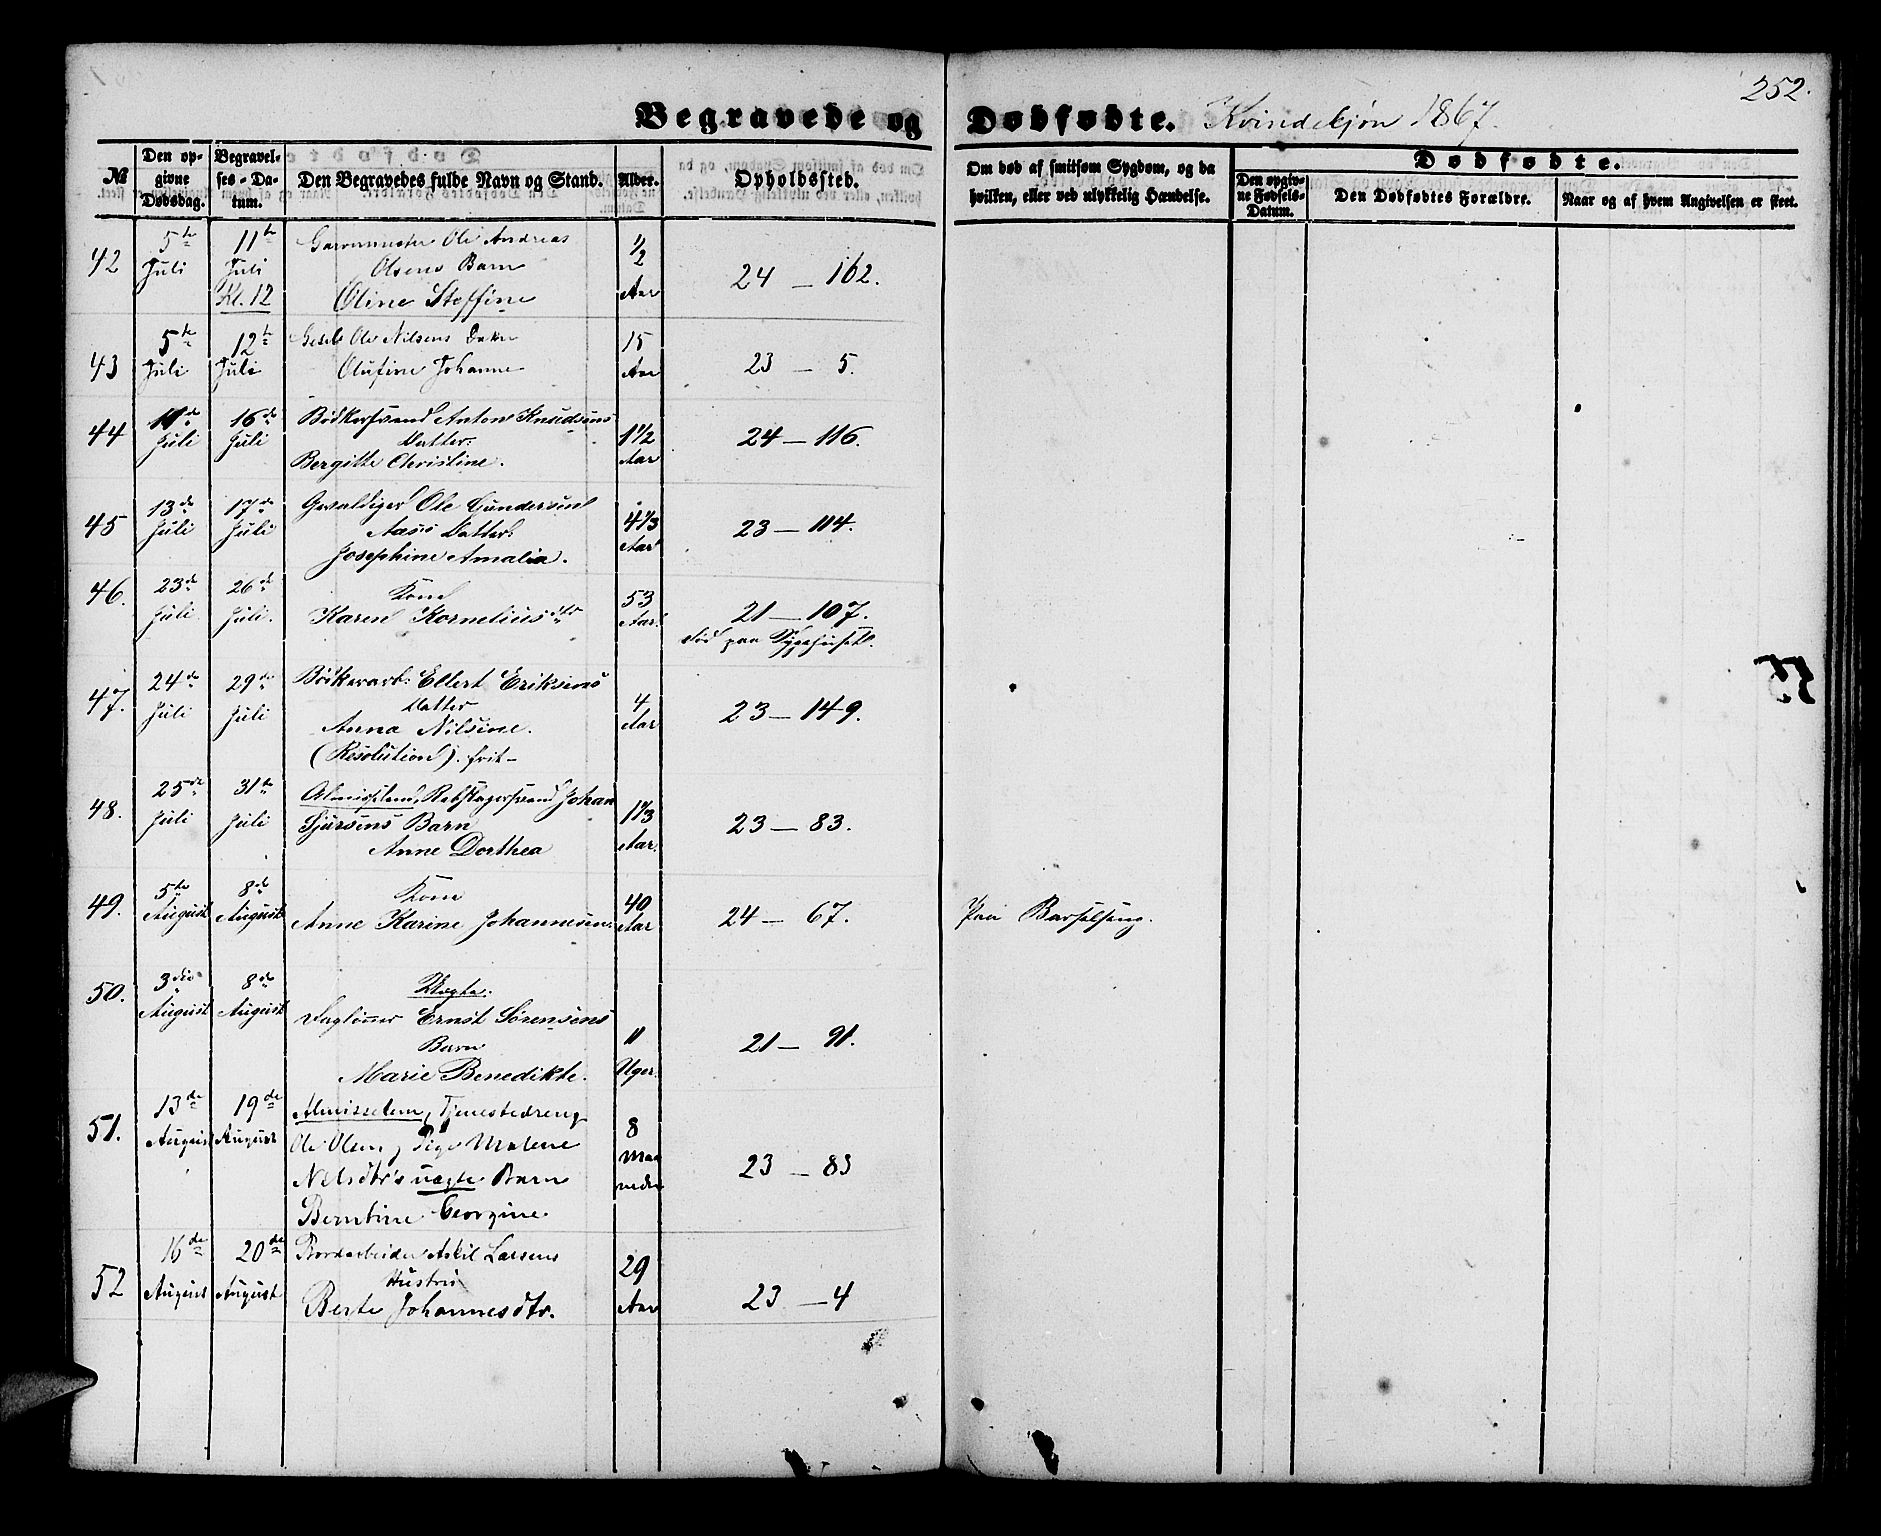 252.
Begravede og Dødfødte. Kvindekjøn 1867.
№
Den opgivne Dødsdag.
Begravelses-Datum.
Den Begravedes fulde Navn og Stand.
Alder.
Opholdssted.
Om død af smitsom Sygdom, og da hvilken, eller ved ulykkelig Hændelse.
Dødfødte.
Den opgivne Fødsels-Datum.
Den Dødfødtes Forældre.
Naar og af hvem Angivelsen er skeet.
42 5te Juli 11te Juli Kl. 12
Garvermester Ole Andreas
Olsens Barn
Oline Steffine
1/2 Aar
24 — 162.
43 5te Juli 12te Juli
Ole Nilsens Datter
Olufine Johanne
15 Aar
23 — 5.
44 11de Juli 16de Juli
Bødkersvend Anton Knudsens
Datter:
Bergitte Christine.
1 1/2 Aar
24 — 116.
45 13de Juli 17de Juli
Gevaldiger Ole Gundersen
Aass Datter:
Josephine Amalia.
4 1/3 Aar
23 — 114.
46. 23de Juli 26de Juli.
Kone
Karen Korneliusdtr
53 Aar.
21 — 107.
død paa Sygehuset.
47. 24de Juli 29de Juli
Bødkerarb: Ellert Eriksens
Datter
Anna Nilsine.
(Resolution). frit —
4 Aar
23 — 149.
48. 25de Juli 31te Juli
Almisselem, Rebslagersvend Johan
Sjursens Barn
Anne Dorthea
1 1/3 Aar.
23 — 83.
49. 5te August 8de August
Kone
Anne Karine Johannesen.
40 Aar
24 — 67.
Paa Barselseng.
50. 3die August 8de August
Uægte.
Dagløner Ernst Sørensens
Barn
Marie Benedikte.
11 Uger.
21 — 91.
51. 13de August 19de August
Almisselem, Tjenestedreng
Ole Olsen, Pige Malene
Nelsdtr's uægte Barn
Berntine Georgine.
8 Maaneder
23 — 83
52 16de August 20de August
Bordarbeider Askil Larsens
Hustru
Berte Johannesdtr.
29 Aar
23 — 4